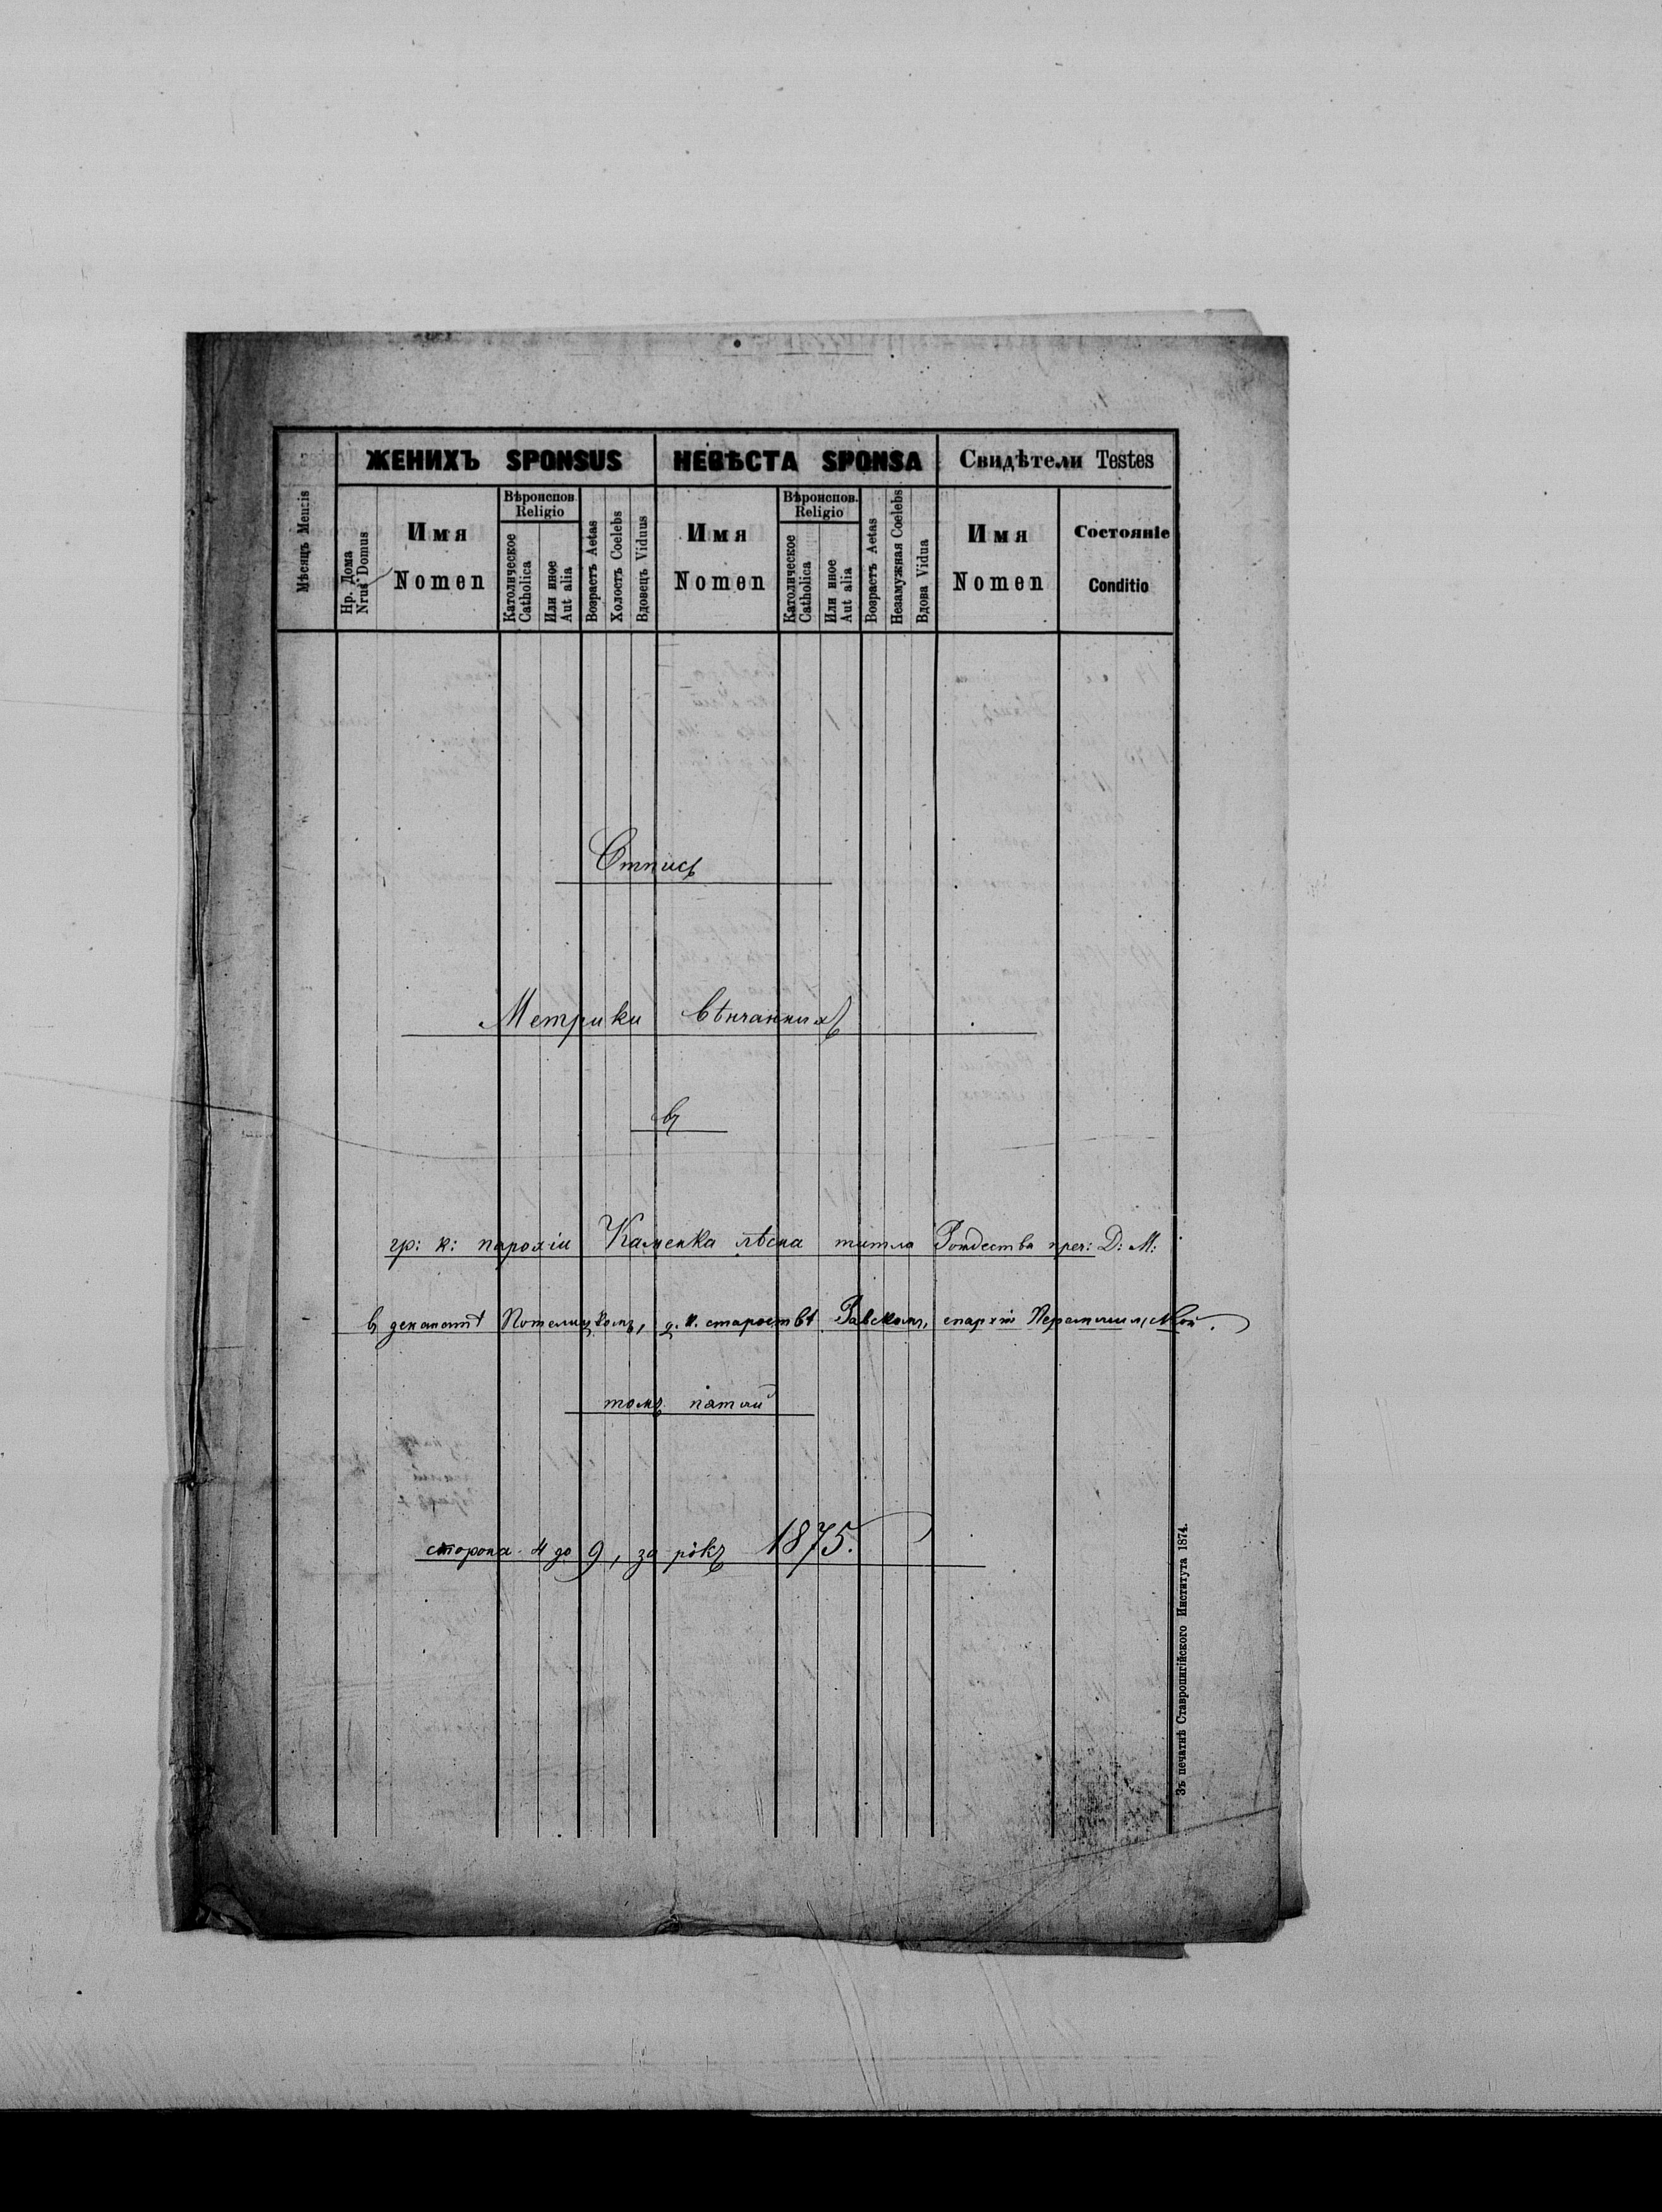 ЖЕНИХЪ SPONSUS НЕВѢСТА SPONSA Свидѣтели Testes
Мѣсяцъ Mensis
Нр. Дома
Nrus Domus
Имя
Nomen
Вѣроиспов.
Religio
Католическое
Catholica
Или иное
Aut alia
Возрастъ Aetas
Холостъ Coelebs
Вдовецъ Viduus
Имя
Nomen
Вѣроиспов.
Religio
Католическое
Catholica
Или иное
Aut alia
Возрастъ Aetas
Незамужная Coelebs
Вдова Vidua
Имя
Nomen
Состояніе
Conditio
Отписъ
Метрики вѣнчанныхъ
въ
гр: к: парохіи Каменка лѣсна титла Рождества преч: Д: М:
въ деканатѣ Потелицкомъ, ц. к. староствѣ Равскомъ, епархіи Перемышльской.
томъ пятый
сторона 4 до 9, за рôкъ 1875.
Зъ печатнѣ Ставропигійского Института 1874.